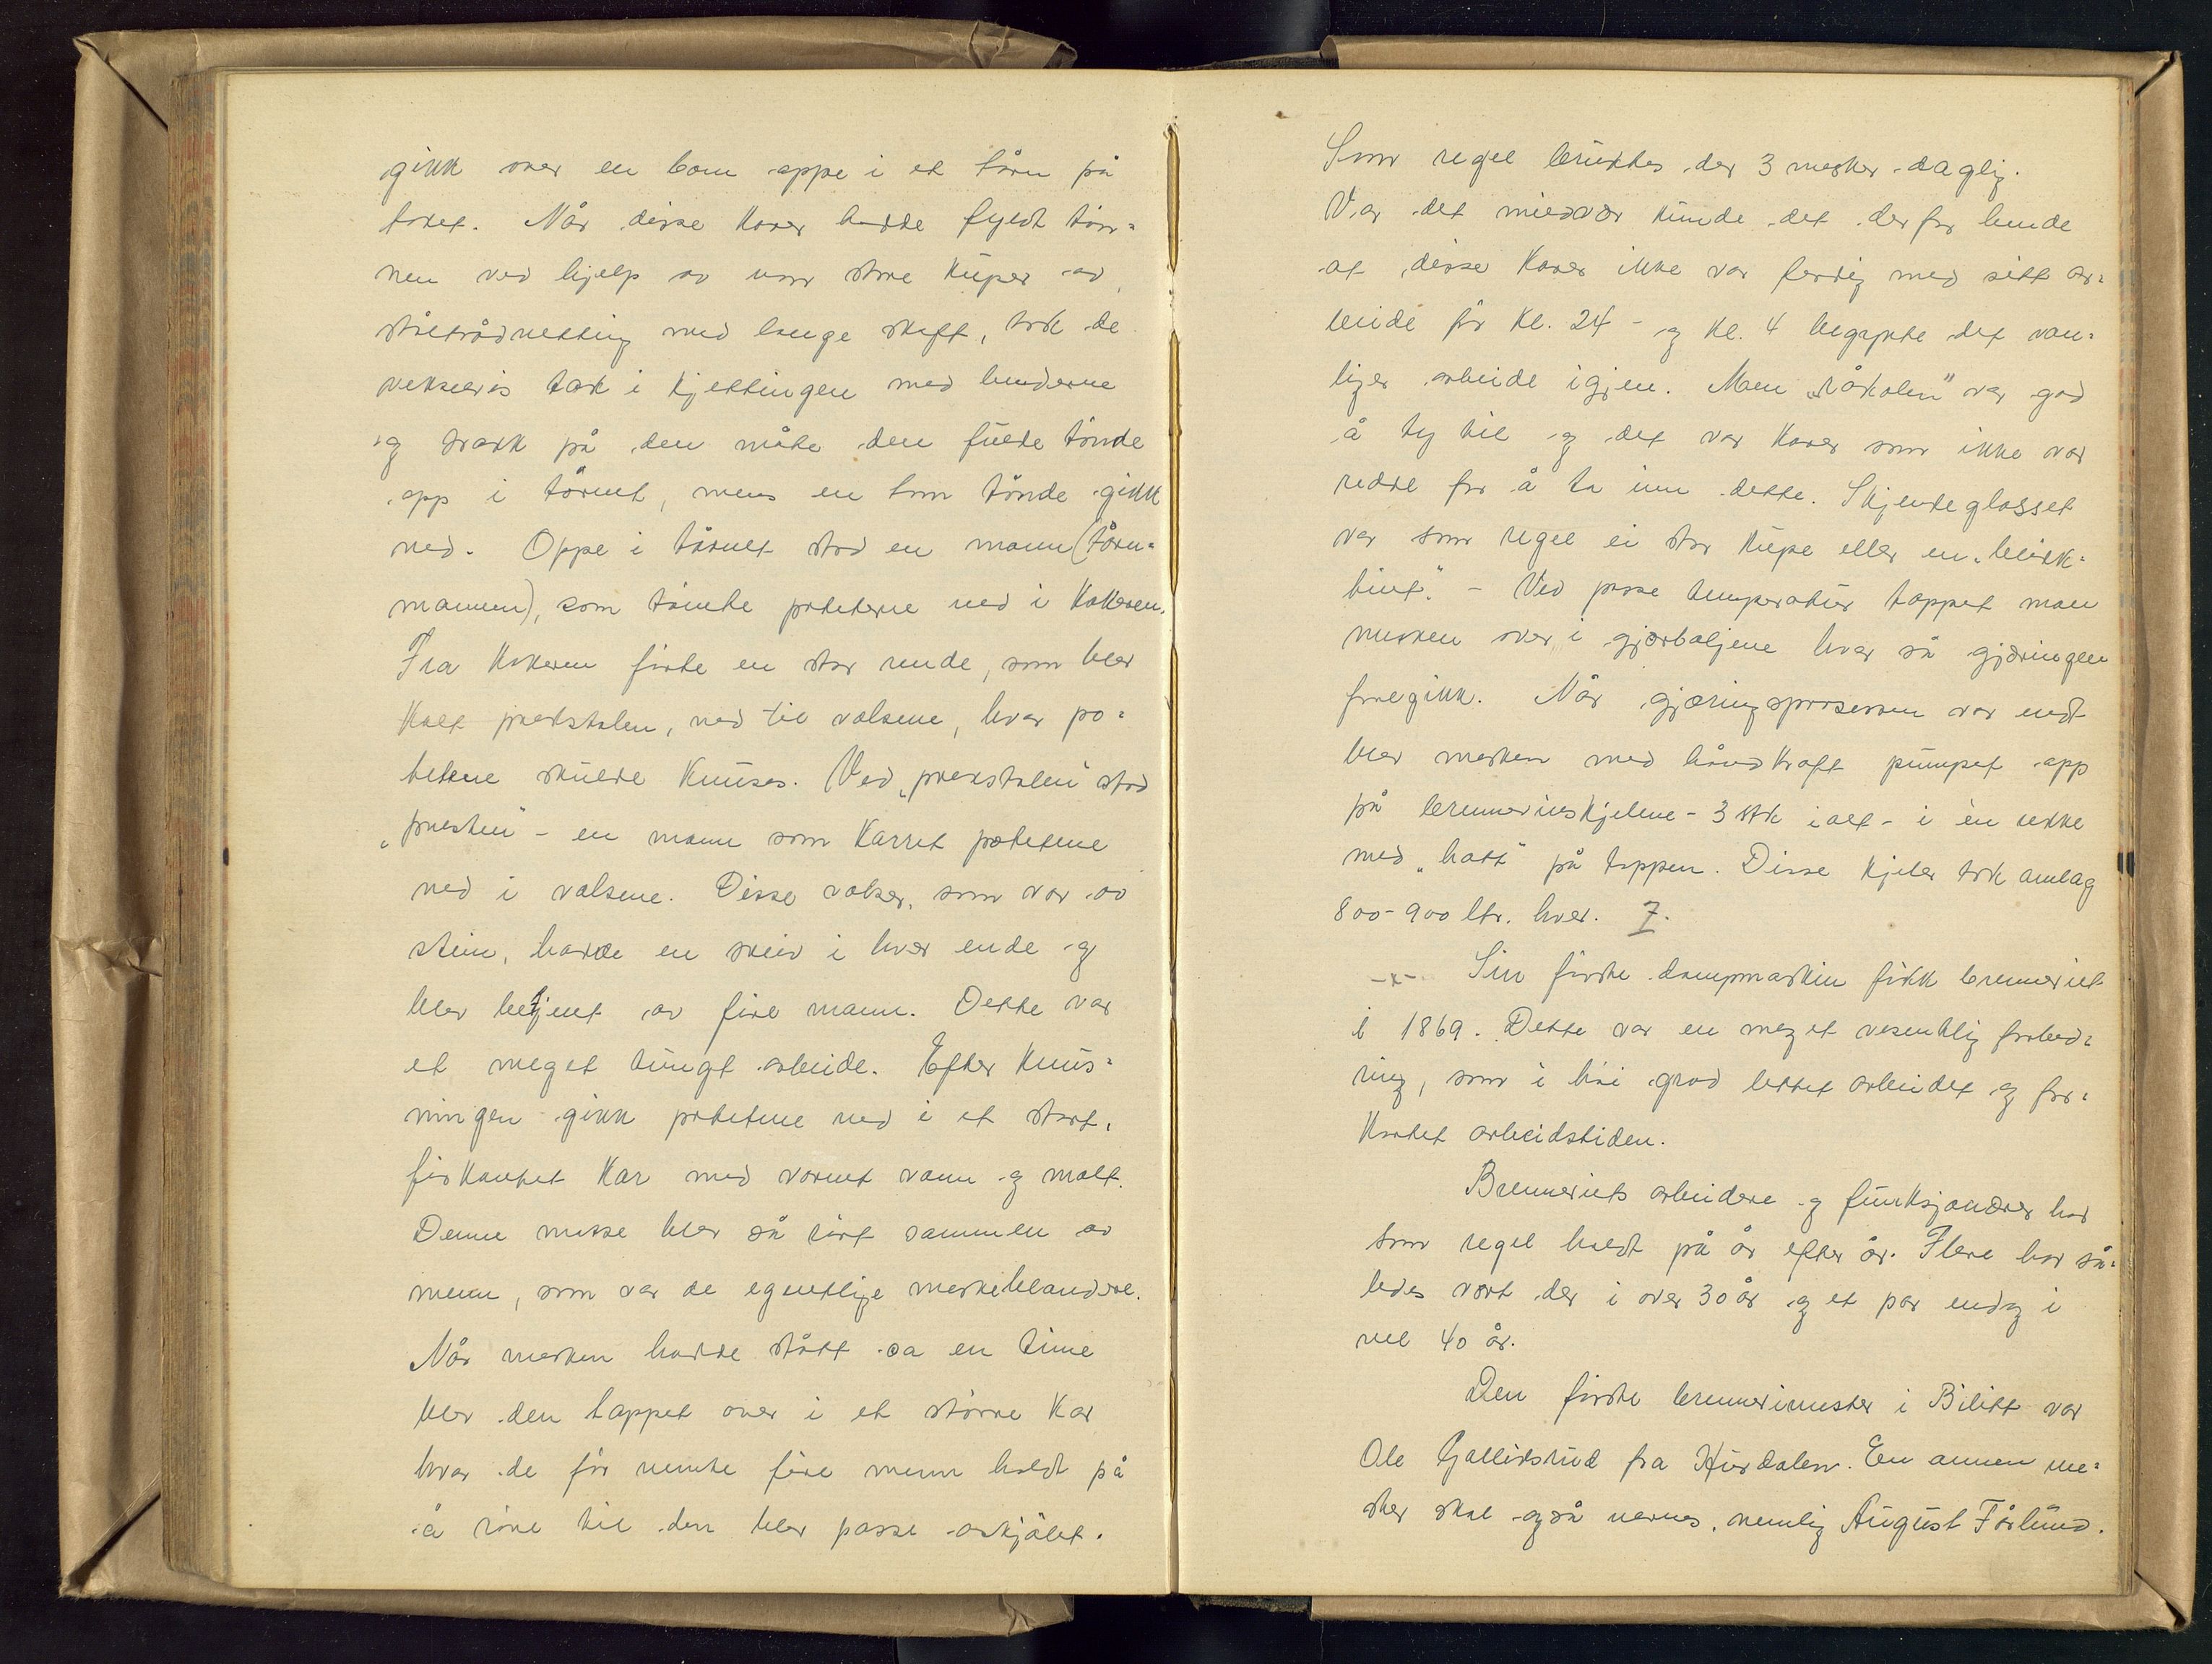 gikk over en bom oppe i et tårn på
taket. Når disse karer hadde fyldt tøn=
nen ved hjelp av noen store kuper av
ståltrådnetting med lange skaft, tok de
vekselvis tak i kjettingen med hendene
og drakk på den måte den fulde tønde
opp i tårnet, mens en tom tønde gikk
ned. Oppe i tårnet stod en mann (tårn=
mannen), som tømte potetene ned i kokeren.
Fra kokeren førte en stor rende, som blev
kalt prekstolen, ned til valsene, hvor po=
tetene skulde knuses. Ved „prekstolen" stod
„presten" - en mann som karret potetene
ned i valsene. Disse valser, som var av
stein, hadde en sveiv i hver ende og
blev betjent av fire mann. Dette var
et meget tungt arbeide. Efter knus=
ningen gikk potetene ned i et stort,
firkantet kar med varmt vann og malt.
Denne masse blev så rørt sammen av
menn, som var de egentlige meskeblandere.
Når mesken hadde stått ca en time
blev den tappet over i et større kar
hvor de før nevnte fire menn holdt på
å røre til den blev passe avkjølet.
Som regel bruktes der 3 mesker daglig.
Var det mildvær kunde det derfor hende
at disse karer ikke var ferdig med sitt ar=
beide før kl. 24 - og kl. 4 begynte det van=
lige arbeide igjen. Men „råkolen" var god
å ty til og det var karer som ikke var
redde for å ta inn dette. Skjenkeglasset
var som regel ei stor kupe eller en „blikk=
bint." - Ved passe temperatur tappet man
mesken over i gjærbaljene hvor så gjæringen
foregikk. Når gjæringsprosessen var endt
blev mesken med håndkraft pumpet opp
på brenneriets kjelene - 3 stk i alt - i én rekke
med „hatt" på toppen. Disse kjeler tok omlag
800-900 ltr. hver. 7.
-x- Sin første dampmaskin fikk brenneriet
i 1869. Dette var en meget vesentlig forbed=
ring, som i høi grad lettet arbeidet og for=
kortet arbeidstiden.
Brenneriets arbeidere og funksjonærer har
som regel holdt på år efter år. Flere har så=
ledes vært der i over 30 år og et par endog i
vel 40 år.
Den første brennerimester i Bilitt var
Ole Gjallisrud fra Hurdalen. En annen me=
ster skal også nevnes, nemlig August Fårlund.